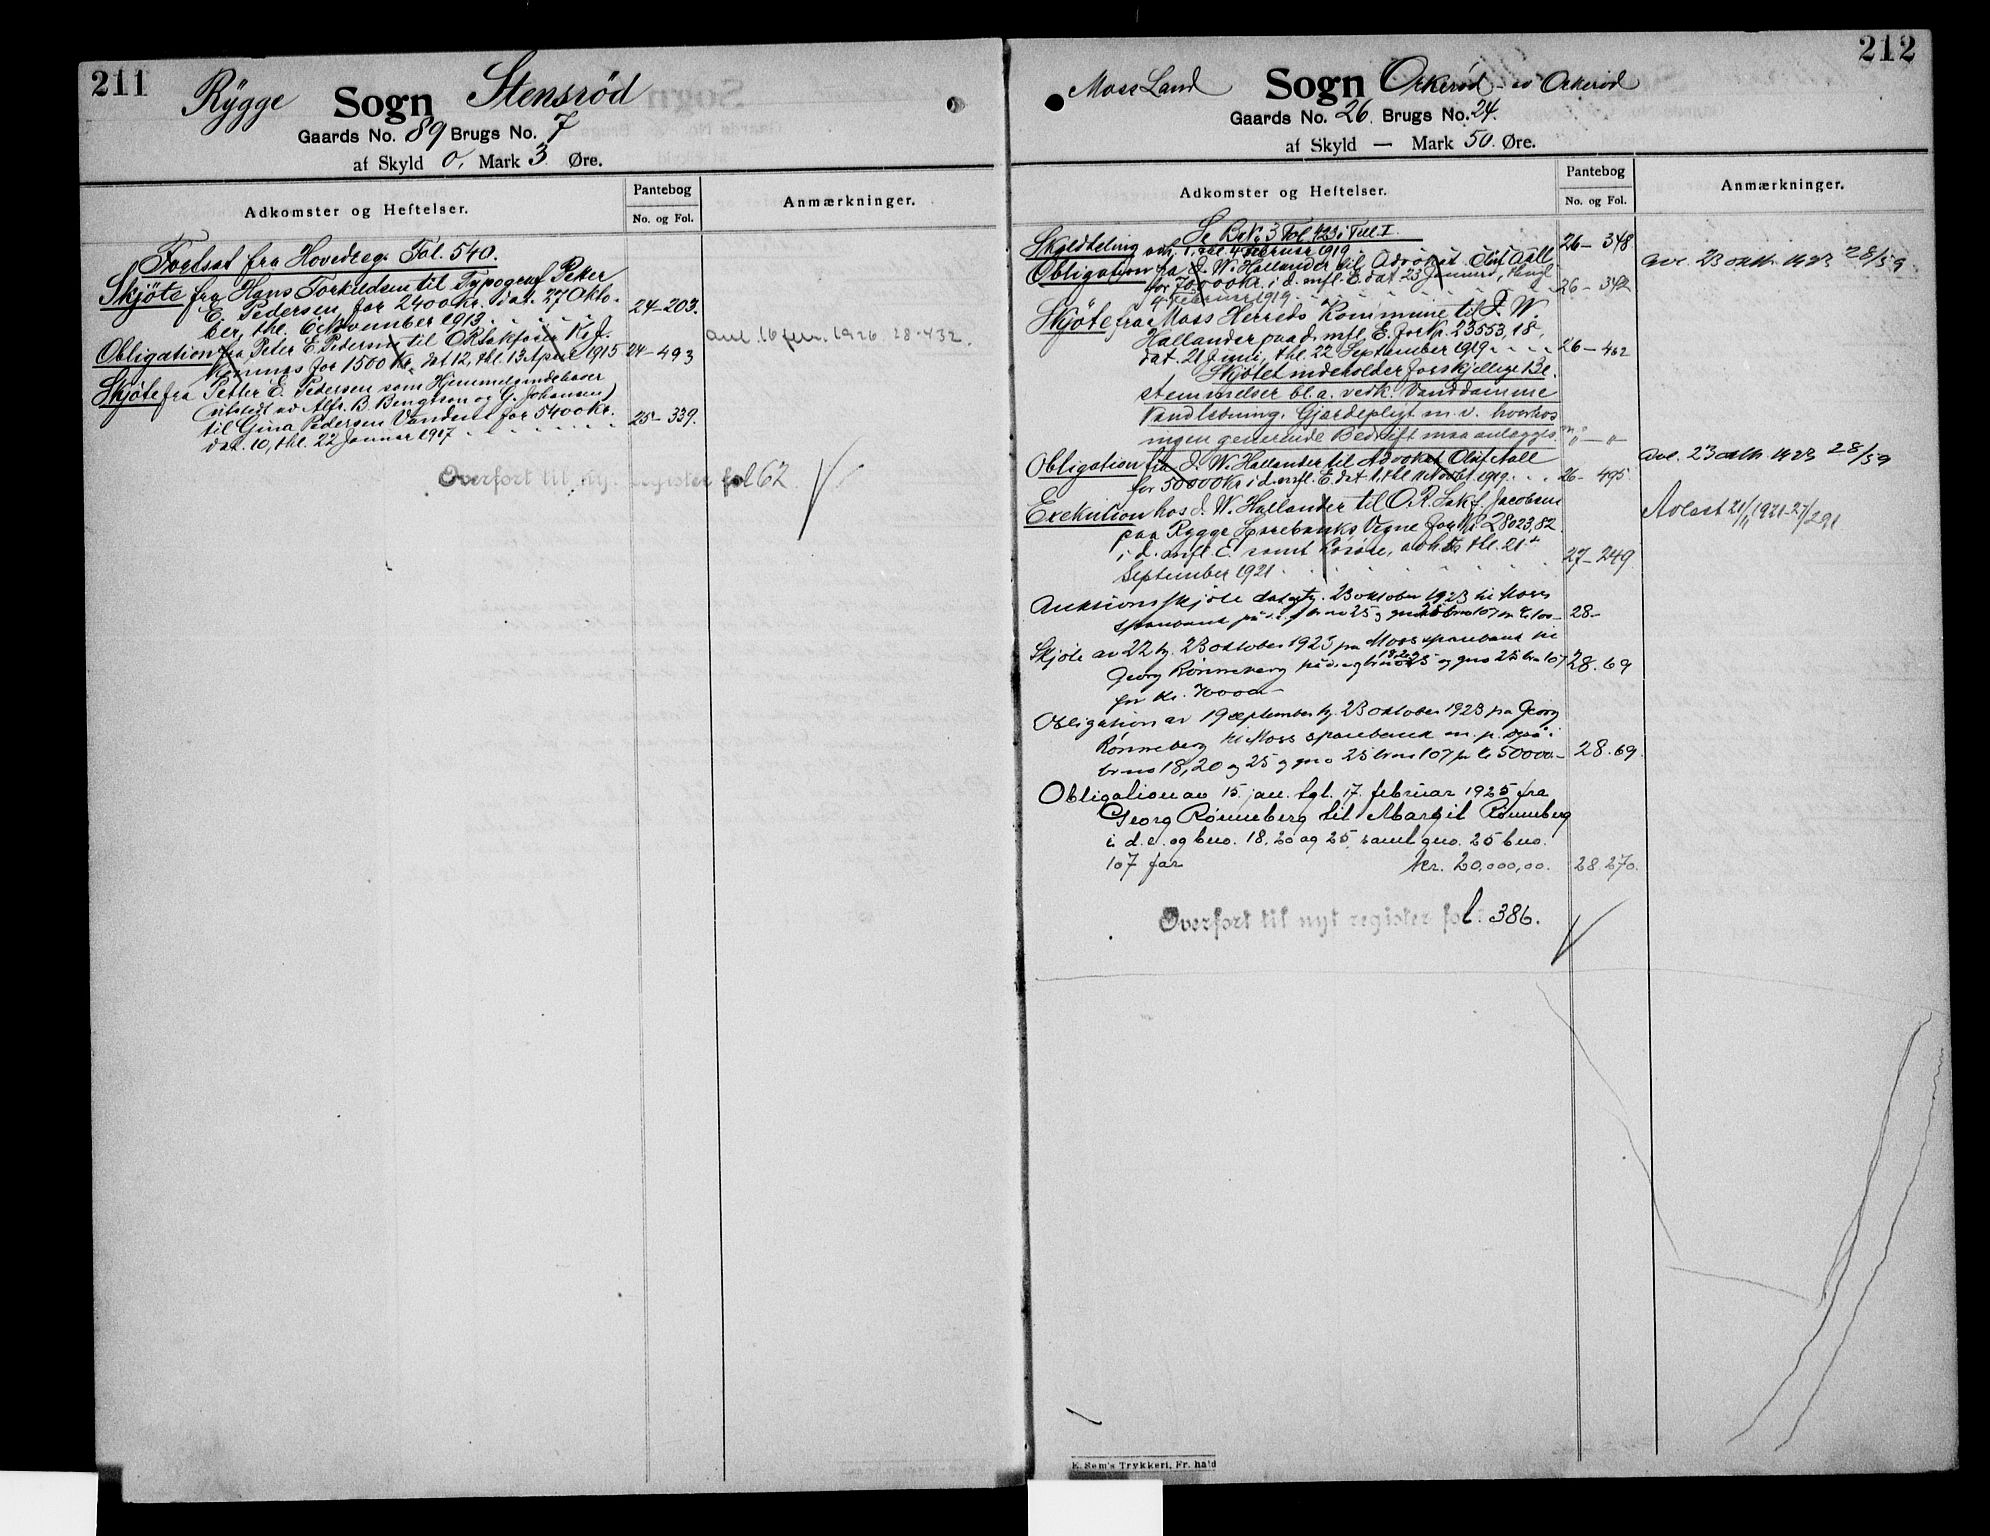 211
Rygge Sogn Stensröd
Gaards No. 89 Brugs No. 7
af Skyld 0, Mark 3 Øre.
Adkomster og Heftelser.
Pantebog
No. og Fol.
Anmærkninger.
Fortsat fra Hovedreg. Fol. 540.
Skjöte fra Hans Torkildsen til Typograf Peter
E. Pedersen for 2400 Kr. dat. 27 Okto-
ber, thl. 6 November 1913. 24-203.
Obligation fra Peter E. Pedersen til ORsakfører K. J.
for 1500 Kr. dat 12, thl. 13 April 1915 24-493
anl. 16 1926. 28-432.
Skjöte fra Petter E. Pedersen som Himmelsindehaver
(utstedt av Alfr. B. Bengtson og G. Johansen)
til Gina Pedersen Vandem for 5400 Kr.
dat. 10, thl. 22 Januar 1917 25-339.
Overført til ny. register fol 62
212
Moss Land Sogn Orkeröd
Gaards No. 26. Brugs No. 24.
af Skyld — Mark 50 Øre.
Adkomster og Heftelser.
Pantebog
No. og Fol.
Anmærkninger.
Se Br.No 3 Fol. 123 i Del I.
Skylddeling avh. 1, thl. 4 Februar 1919. 26-348
Obligation fra J. W. Hallander til Advokat Oluf Aall
for 70000 Kr. i d. mfl. E. dat 23 Januar, thingl
4 Februar 1919. 26-349
avl. 23 oktb. 1923 28/59
Skjöte fra Moss Herreds Kommune til J. W.
Hallander paa d. mfl. E. for Kr. 23553,18,
dat. 21 Juni, thl. 22 September 1919. 26-462
Skjötet indeholder forskjellige Be-
stemmelser bl.a. vedk. Vanddamme
Vandledning, Gjærdepligt m. v. hvorhos
ingen generende Bedrift maa anlægges. " — "
Obligation fra J. W. Hallander til Advokat Oluf Aall
for 50000 Kr. i d. mfl. E. dat 1, thl. 11 Novbr. 1919. 26-495
avl. 23 oktb. 1923 28/59
Exekution hos J. W. Hallander til O.R. Sakf. Jacobsen
paa Rygge Sparebanks Vegne for Kr. 28023,82
i d. mfl. E. samt Lösöre, avh. thl. 21
September 1921 27-249
Avlest 21/11 1921-27/291
Auktionsskjöte dat tgl. 23 oktober 1923 til Moss
sparebank på 28-
Skjöte av 22 tgl. 23 oktober 1923 fra Moss sparebank til
Georg Rönneberg på d. e. og brno 18, 20, 25 og gno 25 brno 107
for kr. 70000- 28.69
Obligation av 19 september tgl. 23 oktober 1923 fra Georg
Rönneberg til Moss sparebank m. p.
brno 18, 20 og 25 og gno 25 brno 107 for kr 50000- 28.69.
Obligation av 15. jan. tgl. 17. februar 1925 fra
Georg Rönneberg til Margit Rönneberg
i d. e. og bno. 18, 20 og 25, samt gno. 25 bno.
107 for kr. 20.000,00. 28.270.
Overført til nyt register fol. 386.
E. Sem's Trykkeri, Fr.hald